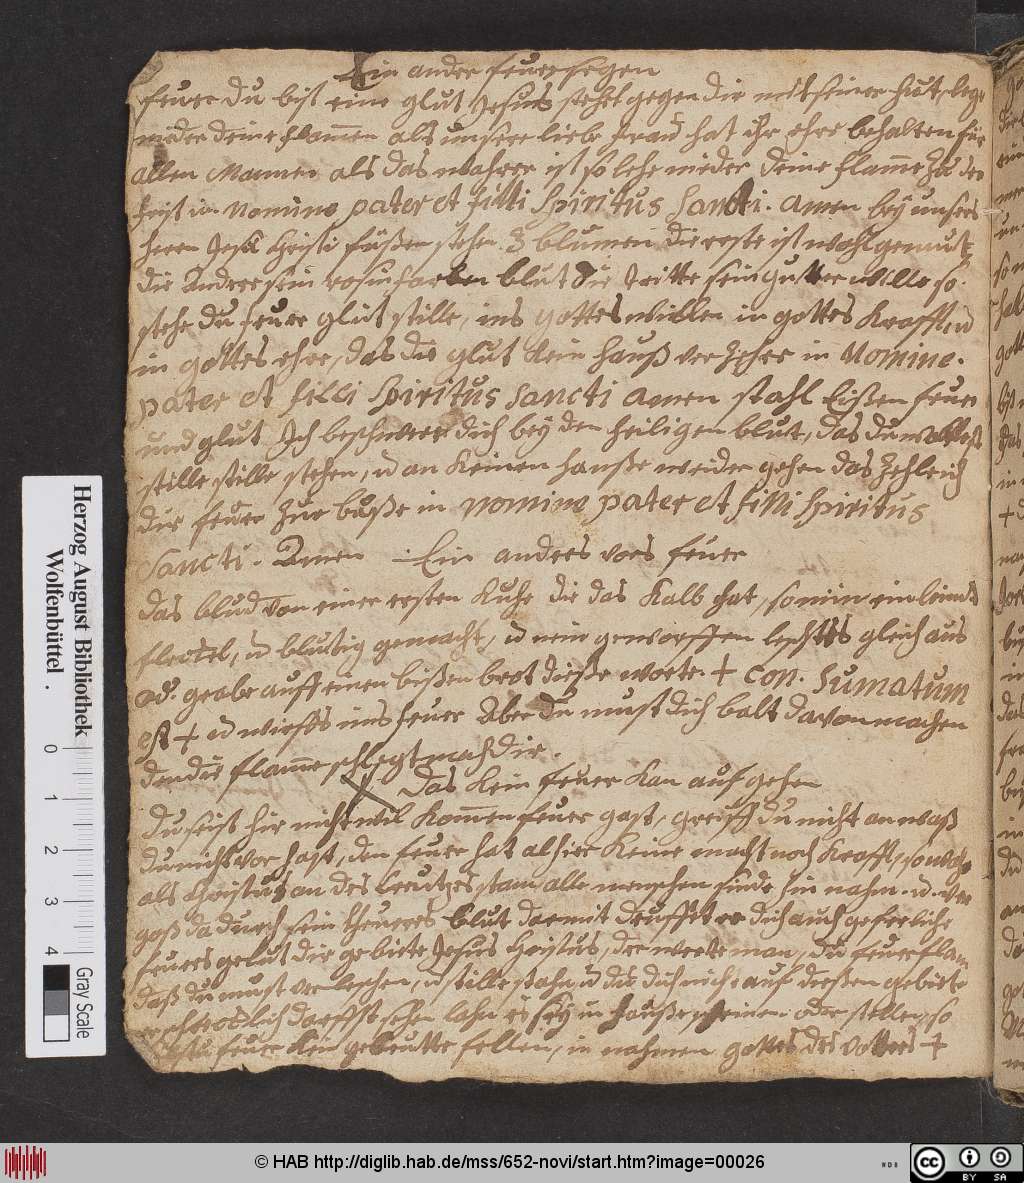 Ein ander feuer segen
feuer du bist eine glut Jesus stehet gegen dir mit seiner hut, lege
nieder deine flamen als unsere liebe Frau hat ihr ehre behalten für
allen Manner als das wahrer ist so lehe nieder deine flame zu der
frist in Nomine pater et filli Spiritus Sancti. amen bey unsers
herrn Jesu Christi füßen stehen 3 blumen die erste ist wohlgemut,
die Andere sein rosinfarben blut die Dritte sein gutter wille so
stehe du feuer glut stille, ins gottes willen in gottes Krafft, u
in gottes ehre, das die glut kein hauß verzehre in Nomine.
pater et filli Spiritus Sancti amen stahl Eißen feuer
und glut Ich beschwere dich bey den heiligen blut, das du wollest
stille stille stehen, u an keinen hauße weider gehen das zehle ich
dir feuer zur buße in nomino pater et filli Spiritus
Sancti. Amen Ein anders vors feuer
das blud von einer ersten Kuhe die das Kalb hat, so nim ein
fleckel, u blutig gemacht, u nein geworffen leschtes gleich aus
od. grabe auff einen bißen brot dieße worte + Con. Sumatum
est + u wirffs ins feuer Aber du must dich balt davon machen
den die flame schlegt nach dir.
Das kein feuer kan auf gehen
Du seist hir nicht wil kommen feuer gast, greiff du nicht an waß
du nicht vor hast, den feuer hat alhier keine macht noch Krafft,
als Christus an des Creutzes stam alle menschen sünde hin nahm u. ver
goß da durch sein theueres blut darmit dich auch geferliche
feuers gelut dir gebiete Jesus Christus, der werte man, du feuer flam
daß du must verleschen, u stille stahn, u das dich nicht auf dießen gebiete
darffst sehen lahn es sey in hauße scheinen oder stellen, so
feuer dein gebeutte fellen, in nahmen gottes des vatters +
Herzog August Bibliothek
Wolfenbüttel .
0 1 2 3 4
Gray Scale
© HAB http://diglib.hab.de/mss/652-novi/start.htm?image=00026
cc BY SA